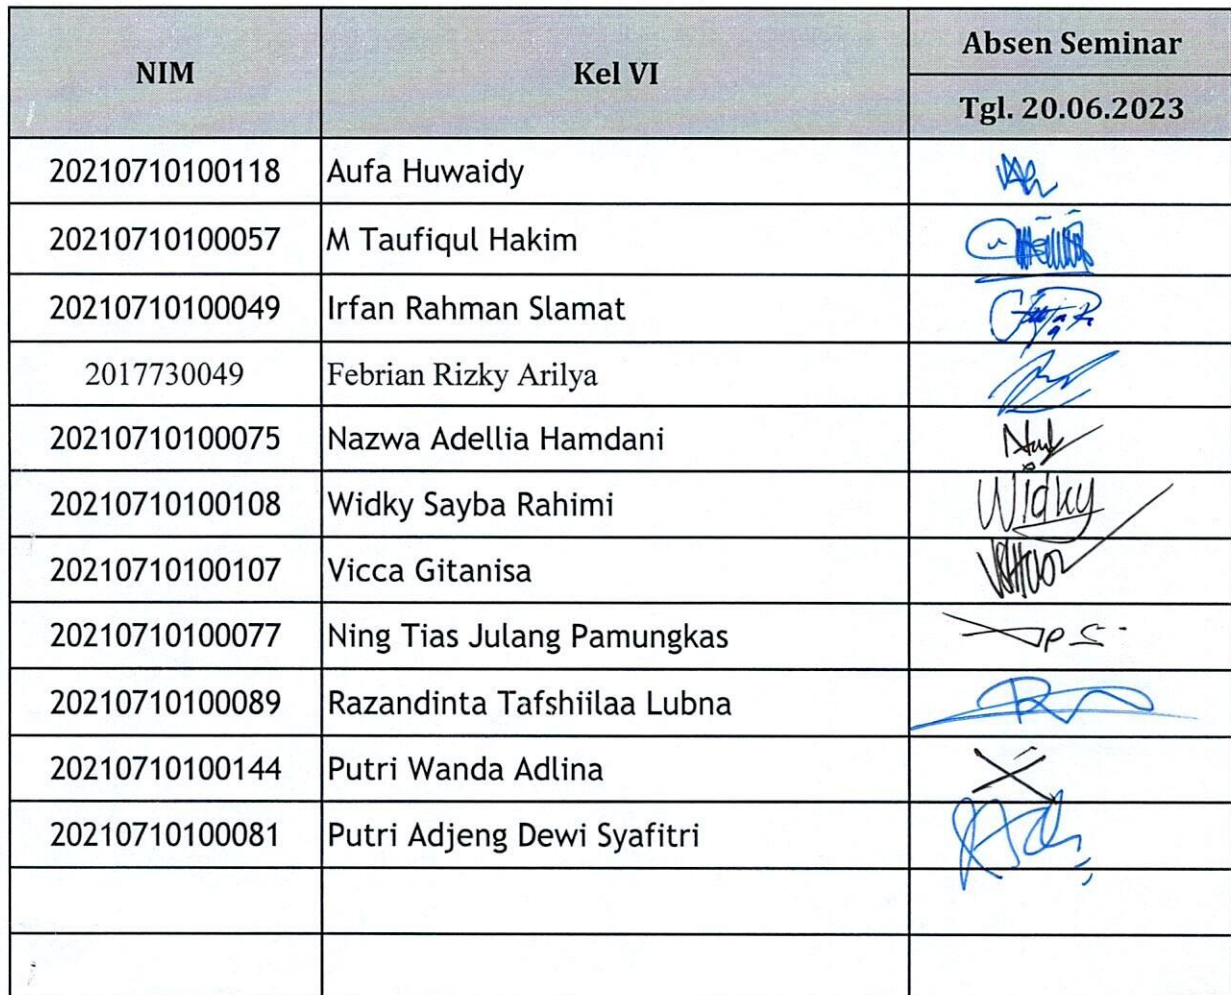 NIM Kel VI Absen Seminar
Tgl. 20.06.2023
20210710100118 Aufa Huwaidy
20210710100057 M Taufiqul Hakim
20210710100049 Irfan Rahman Slamat
2017730049 Febrian Rizky Arilya
20210710100075 Nazwa Adellia Hamdani
20210710100108 Widky Sayba Rahimi Widky
20210710100107 Vicca Gitanisa
20210710100077 Ning Tias Julang Pamungkas
20210710100089 Razandinta Tafshiilaa Lubna
20210710100144 Putri Wanda Adlina
20210710100081 Putri Adjeng Dewi Syafitri